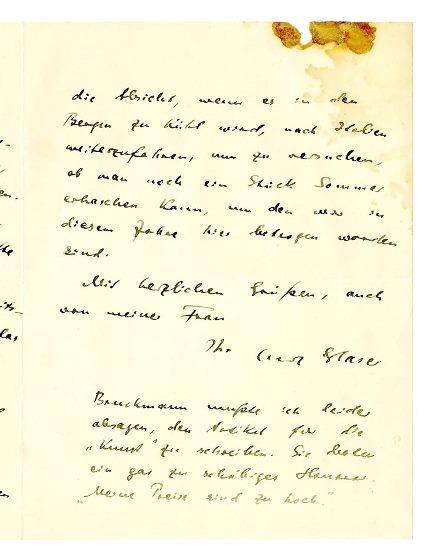 die Absicht, wenn es in den
Bergen zu kühl wird, nach Italien
weiterzufahren, um zu versuchen,
ob man noch ein Stück Sommer
erhaschen kann, um den wir in
diesem Jahre hier betrogen worden
sind.
Mit herzlichen Grüßen, auch
von meiner Frau
Ihr Curt Glaser
Bruckmann mußte ich leider
absagen, den Artikel für die
„Kunst“ zu schreiben. Sie boten
ein gar zu schäbiges Honorar.
„Meine Preise sind zu hoch.“